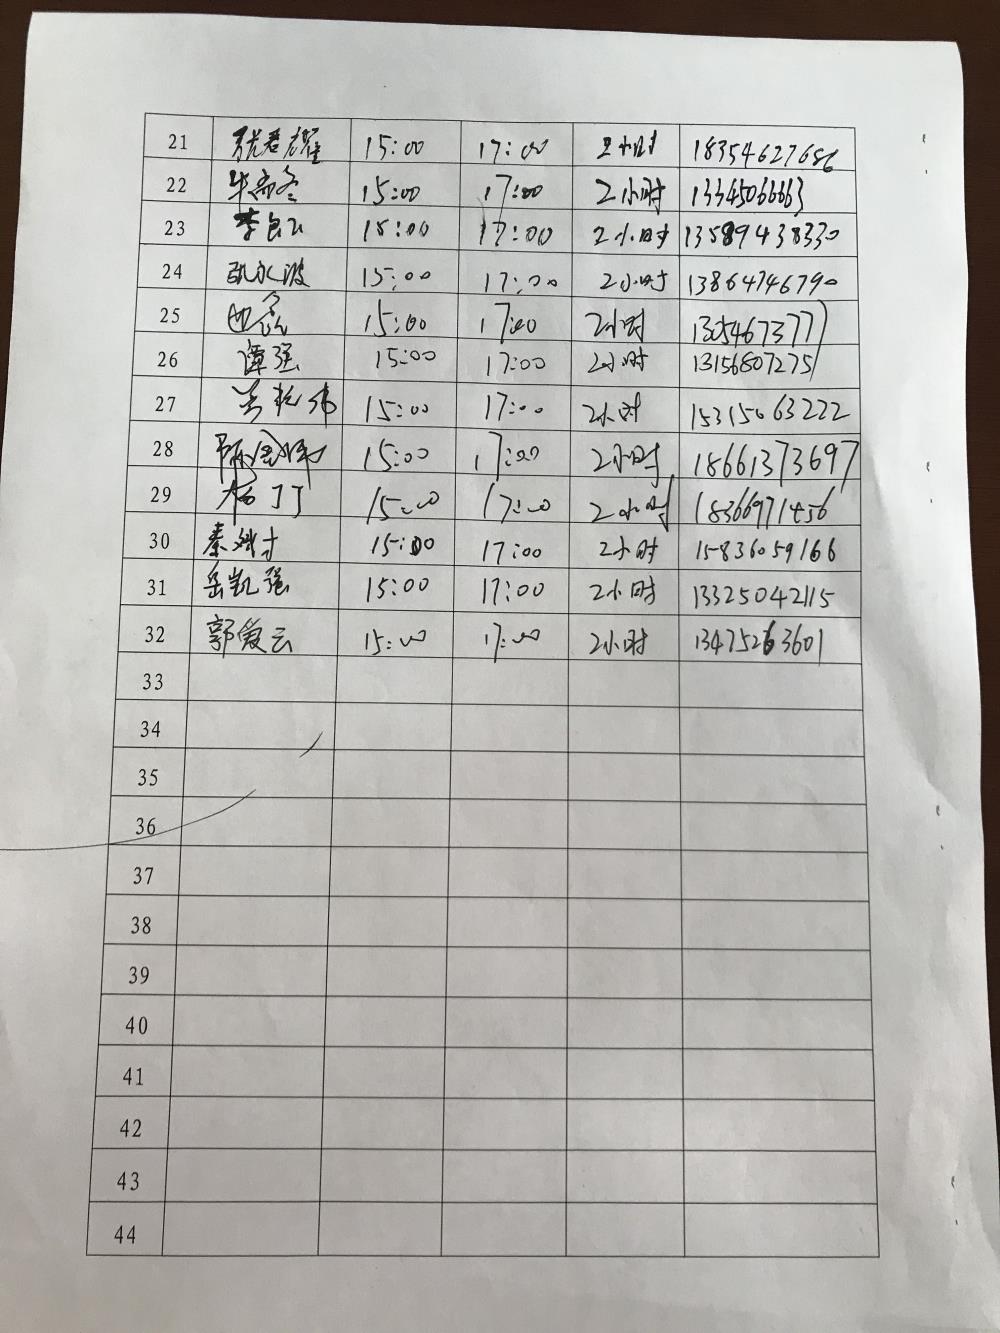 21 15:00 17:00 2小时 18354627686
22 15:00 17:00 2小时 13345066663
23 李良工 15:00 17:00 2小时 13589438330
24 孔永波 15:00 17:00 2小时 13864746790
25 15:00 17:00 2小时 13054673777
26 谭强 15:00 17:00 2小时 13156807275
27 15:00 17:00 2小时 15315063222
28 15:00 17:00 2小时 18661373697
29 杨丁丁 15:00 17:00 2小时 18366971456
30 秦 15:00 17:00 2小时 15836059166
31 岳凯强 15:00 17:00 2小时 13325042115
32 郭爱云 15:00 17:00 2小时 13475263601
33
34
35
36
37
38
39
40
41
42
43
44